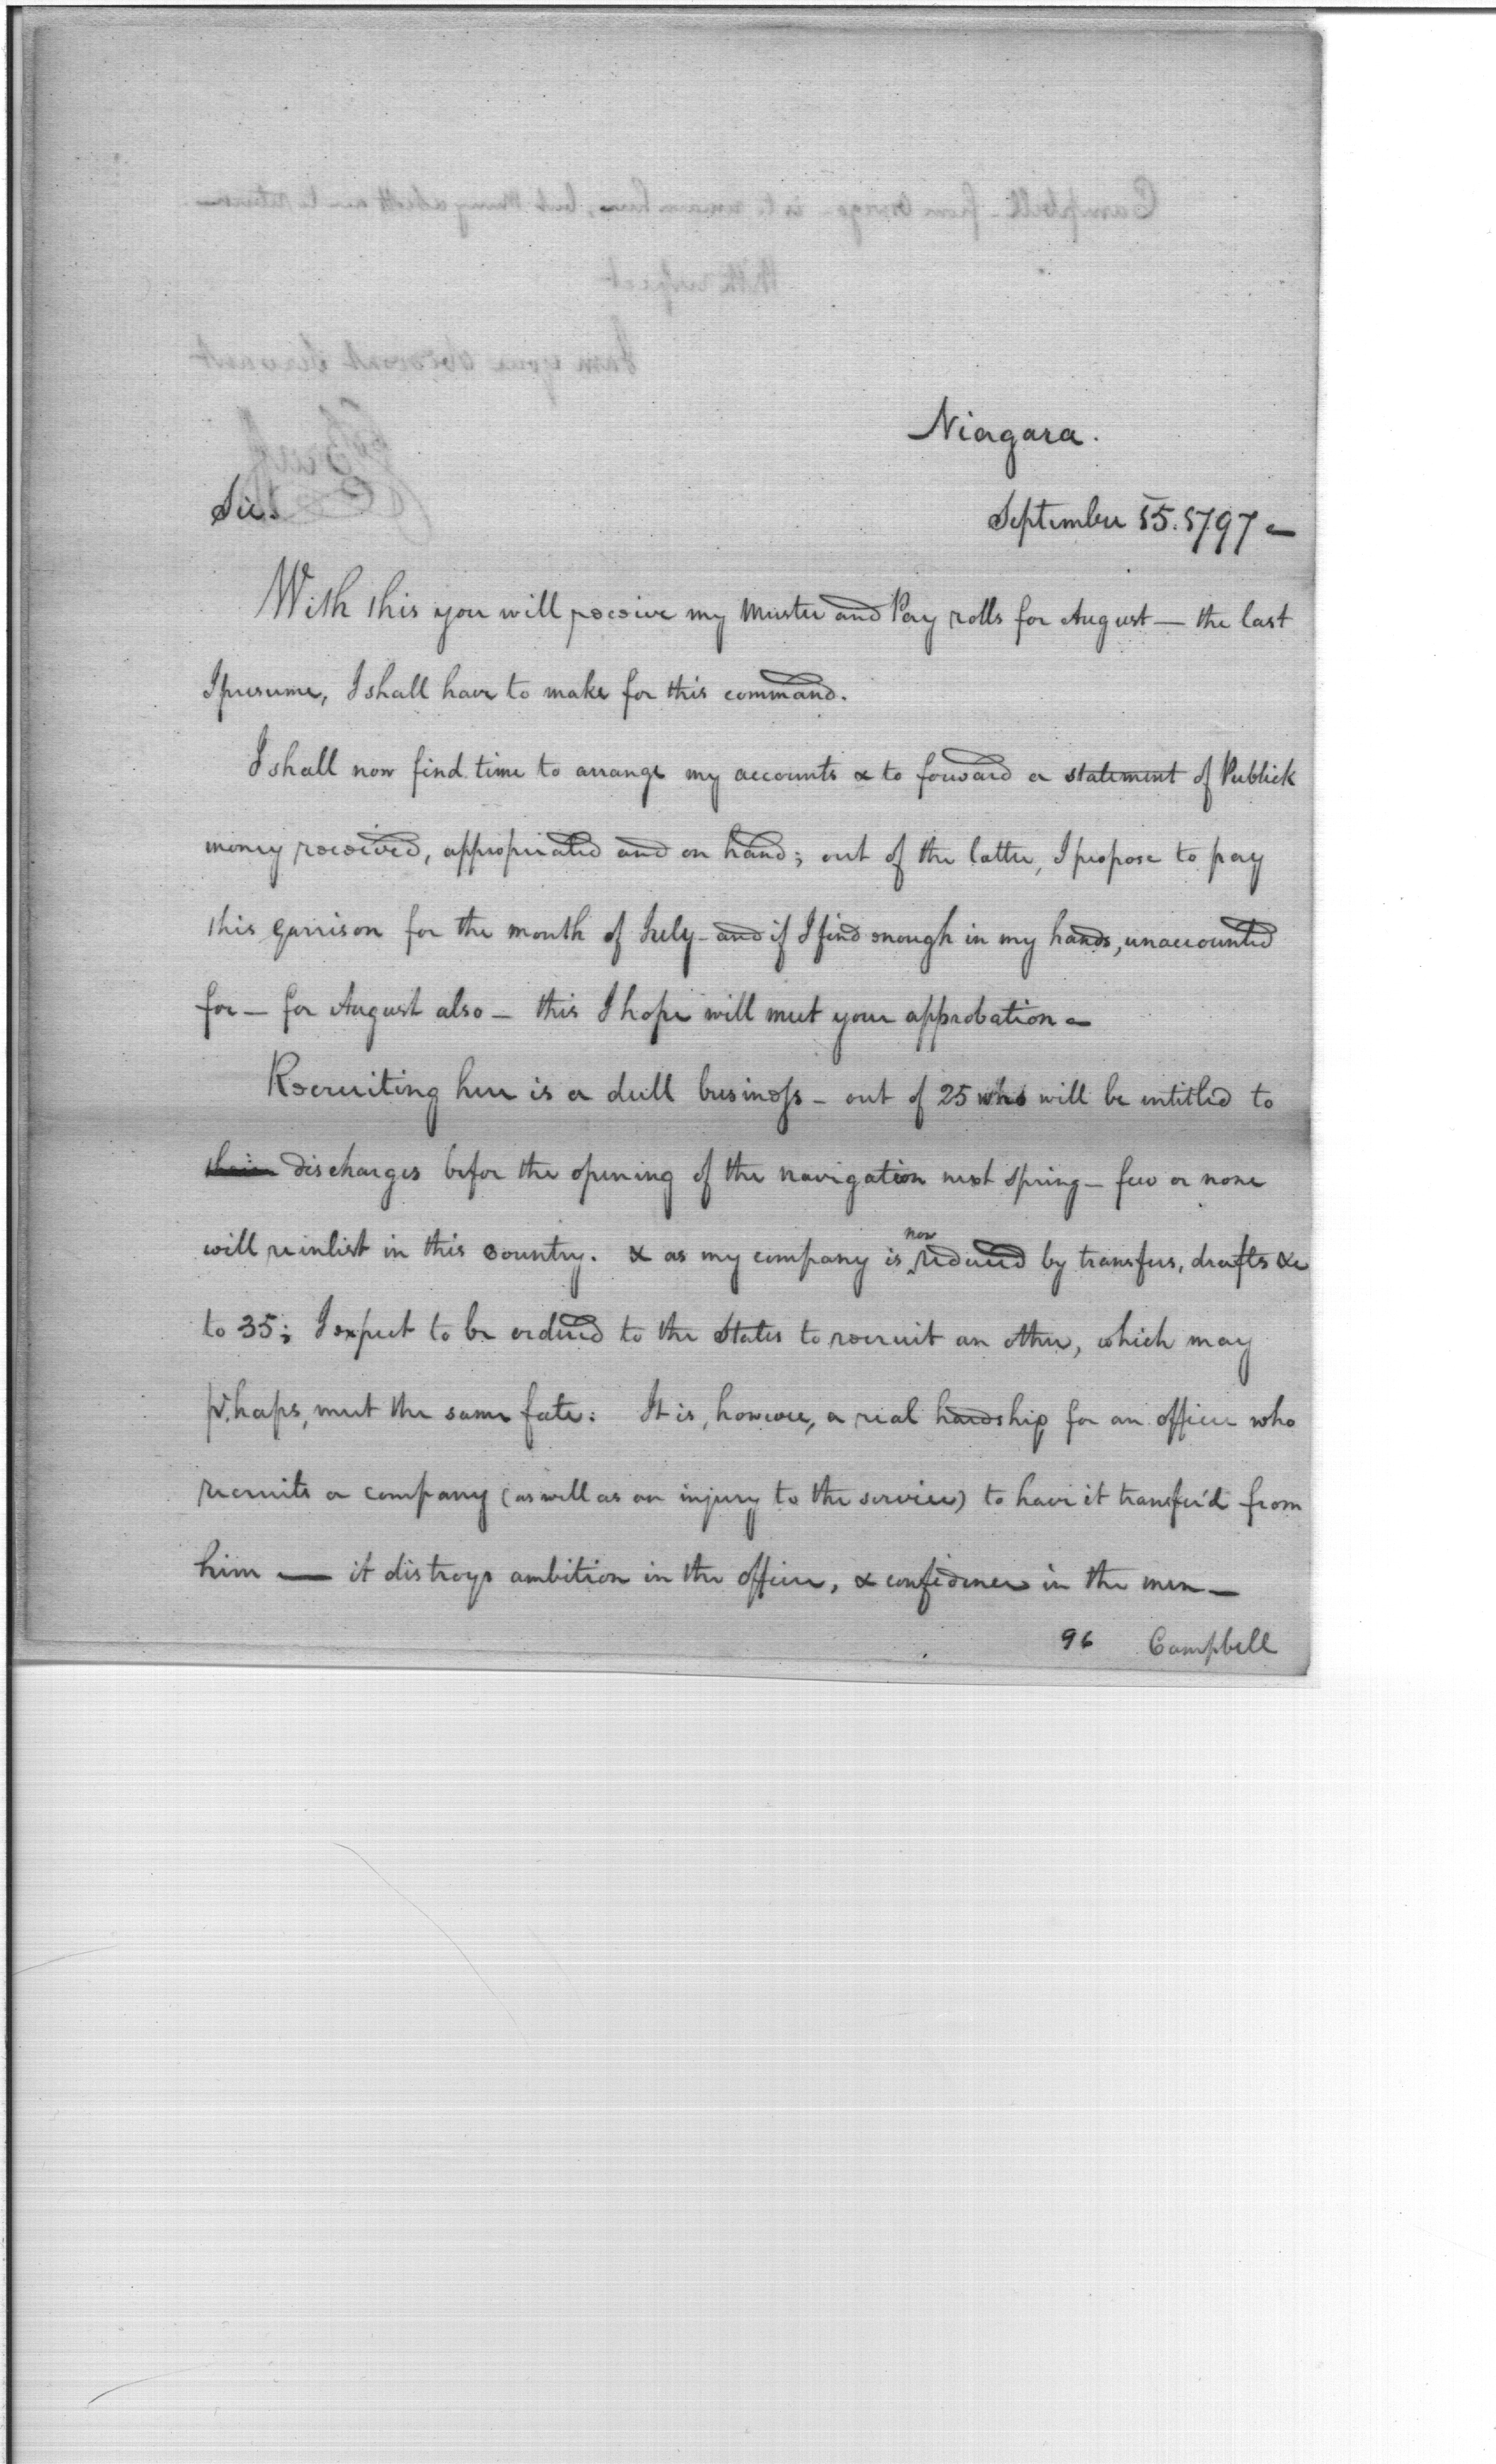 Niagara.
Sir. September 15. 1797 —
With this you will receive my Muster and Pay rolls for August — the last
I presume, I shall have to make for this command.
I shall now find time to arrange my accounts & to forward a statement of Publick
money received, appropriated and on hand; out of the latter, I propose to pay
this garrison for the month of July - and if I find enough in my hands, unaccounted
for — for August also — this I hope will meet your approbation —
Recruiting here is a dull business - out of 25 who will be intitled to
their discharges befor the opening of the navigation next spring — few or none
will reinlist in this Country. & as my company is now reduced by transfers, drafts &c
to 35; I expect to be ordered to the States to recruit an other, which may
prhaps, meet the same fate: It is, however, a real hardship for an officer who
recruits a company (as well as an injury to the service) to have it transfer'd from
him — it distroys ambition in the officer, & confidence in the men —
96 Campbell